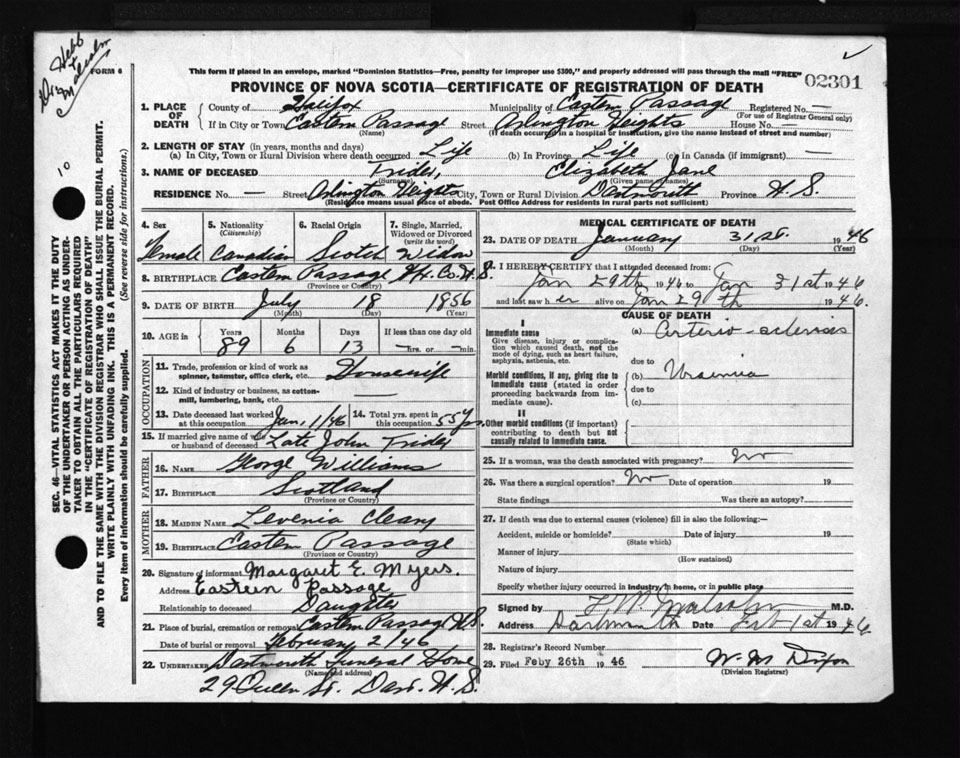 Hebb
+
Dr. Malcolm
FORM 6
✓
This form if placed in an envelope, marked "Dominion Statistics—Free, penalty for improper use $300," and properly addressed will pass through the mail "FREE"
02301
PROVINCE OF NOVA SCOTIA—CERTIFICATE OF REGISTRATION OF DEATH
10
SEC. 46—VITAL STATISTICS ACT MAKES IT THE DUTY
OF THE UNDERTAKER OR PERSON ACTING AS UNDER-
TAKER TO OBTAIN ALL THE PARTICULARS REQUIRED
IN THE "CERTIFICATE OF REGISTRATION OF DEATH"
AND TO FILE THE SAME WITH THE DIVISION REGISTRAR WHO SHALL ISSUE THE BURIAL PERMIT.
WRITE PLAINLY WITH UNFADING INK. THIS IS A PERMANENT RECORD.
Every item of information should be carefully supplied. (See reverse side for instructions.)
1. PLACE OF DEATH
County of Halifax Municipality of Eastern Passage Registered No. —
(For use of Registrar General only)
If in City or Town Eastern Passage Street Arlington Heights House No. —
(Name) (If death occurred in a hospital or institution, give the name instead of street and number)
2. LENGTH OF STAY (in years, months and days)
(a) In City, Town or Rural Division where death occurred Life (b) In Province Life (c) In Canada (if immigrant) —
3. NAME OF DECEASED Trider, Elizabeth Jane
(Surname) (Given name or names)
RESIDENCE No. — Street Arlington Heights City, Town or Rural Division Dartmouth Province N.S.
(Residence means usual place of abode. Post Office Address for residents in rural parts not sufficient)
4. Sex 5. Nationality (Citizenship) 6. Racial Origin 7. Single, Married, Widowed or Divorced (write the word)
Female Canadian Scotch Widow
8. BIRTHPLACE Eastern Passage Hfx. Co. N.S.
(Province or Country)
9. DATE OF BIRTH July 18 1856
(Month) (Day) (Year)
10. AGE in Years Months Days If less than one day old
89 6 13 —hrs. or —min.
OCCUPATION
11. Trade, profession or kind of work as spinner, teamster, office clerk, etc. Housewife
12. Kind of industry or business, as cotton-mill, lumbering, bank, etc. —
13. Date deceased last worked at this occupation Jan, 1/46 14. Total yrs. spent in this occupation 55 yrs.
15. If married give name of wife or husband of deceased Late John Trider
FATHER
16. NAME George Williams
17. BIRTHPLACE Scotland
(Province or Country)
MOTHER
18. MAIDEN NAME Levenia Cleary
19. BIRTHPLACE Eastern Passage
(Province or Country)
20. Signature of informant Margaret E. Myers.
Address Eastern Passage
Relationship to deceased Daughter
21. Place of burial, cremation or removal Eastern Passage N.S.
Date of burial or removal February 2/46
22. UNDERTAKER Dartmouth Funeral Home
(Name and address)
29 Queen St. Dart. N.S.
MEDICAL CERTIFICATE OF DEATH
23. DATE OF DEATH January 31st. 1946
(Month) (Day) (Year)
I HEREBY CERTIFY that I attended deceased from
Jan 29th 1946 to Jan 31st 1946
and last saw her alive on Jan 29th 1946.
CAUSE OF DEATH
I
Immediate cause
Give disease, injury or complication which caused death, not the mode of dying, such as heart failure, asphyxia, asthenia, etc.
(a) Arterio-sclerosis
due to
Morbid conditions, if any, giving rise to immediate cause (stated in order proceeding backwards from immediate cause).
(b) Uraemia
due to
(c)
II
Other morbid conditions (if important) contributing to death but not causally related to immediate cause.
25. If a woman, was the death associated with pregnancy? No
26. Was there a surgical operation? No Date of operation 19
State findings Was there an autopsy?
27. If death was due to external causes (violence) fill in also the following:—
Accident, suicide or homicide? Date of injury 19
(State which)
Manner of injury
(How sustained)
Nature of injury
Specify whether injury occurred in industry, in home, or in public place
Signed by Malcolm M.D.
Address Dartmouth Date Feb 1st 1946
28. Registrar's Record Number
29. Filed Feby 26th 1946 W. M. Dixon
(Division Registrar)